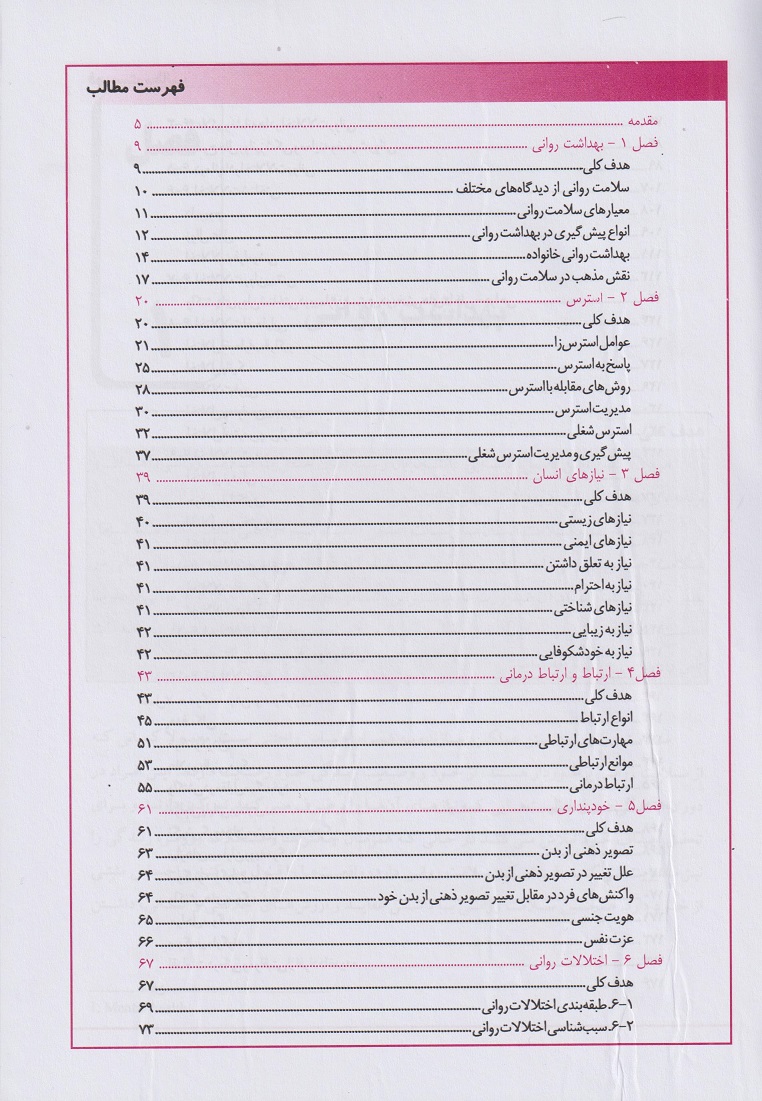 فهرست مطالب
مقدمه ........ ۵
فصل ۱ - بهداشت روانی ........ ۹
هدف کلی ........ ۹
سلامت روانی از دیدگاه‌های مختلف ........ ۱۰
معیارهای سلامت روانی ........ ۱۱
انواع پیش‌گیری در بهداشت روانی ........ ۱۲
بهداشت روانی خانواده ........ ۱۴
نقش مذهب در سلامت روانی ........ ۱۷
فصل ۲ - استرس ........ ۲۰
هدف کلی ........ ۲۰
عوامل استرس‌زا ........ ۲۱
پاسخ به استرس ........ ۲۵
روش‌های مقابله با استرس ........ ۲۸
مدیریت استرس ........ ۳۰
استرس شغلی ........ ۳۲
پیش‌گیری و مدیریت استرس شغلی ........ ۳۷
فصل ۳ - نیازهای انسان ........ ۳۹
هدف کلی ........ ۳۹
نیازهای زیستی ........ ۴۰
نیازهای ایمنی ........ ۴۱
نیاز به تعلق داشتن ........ ۴۱
نیاز به احترام ........ ۴۱
نیازهای شناختی ........ ۴۱
نیاز به زیبایی ........ ۴۲
نیاز به خودشکوفایی ........ ۴۲
فصل۴ - ارتباط و ارتباط درمانی ........ ۴۳
هدف کلی ........ ۴۳
انواع ارتباط ........ ۴۵
مهارت‌های ارتباطی ........ ۵۱
موانع ارتباطی ........ ۵۳
ارتباط درمانی ........ ۵۵
فصل۵ - خودپنداری ........ ۶۱
هدف کلی ........ ۶۱
تصویر ذهنی از بدن ........ ۶۳
علل تغییر در تصویر ذهنی از بدن ........ ۶۴
واکنش‌های فرد در مقابل تغییر تصویر ذهنی از بدن خود ........ ۶۴
هویت جنسی ........ ۶۵
عزت نفس ........ ۶۶
فصل ۶ - اختلالات روانی ........ ۶۷
هدف کلی ........ ۶۷
۶-۱. طبقه‌بندی اختلالات روانی ........ ۶۹
۶-۲. سبب‌شناسی اختلالات روانی ........ ۷۳